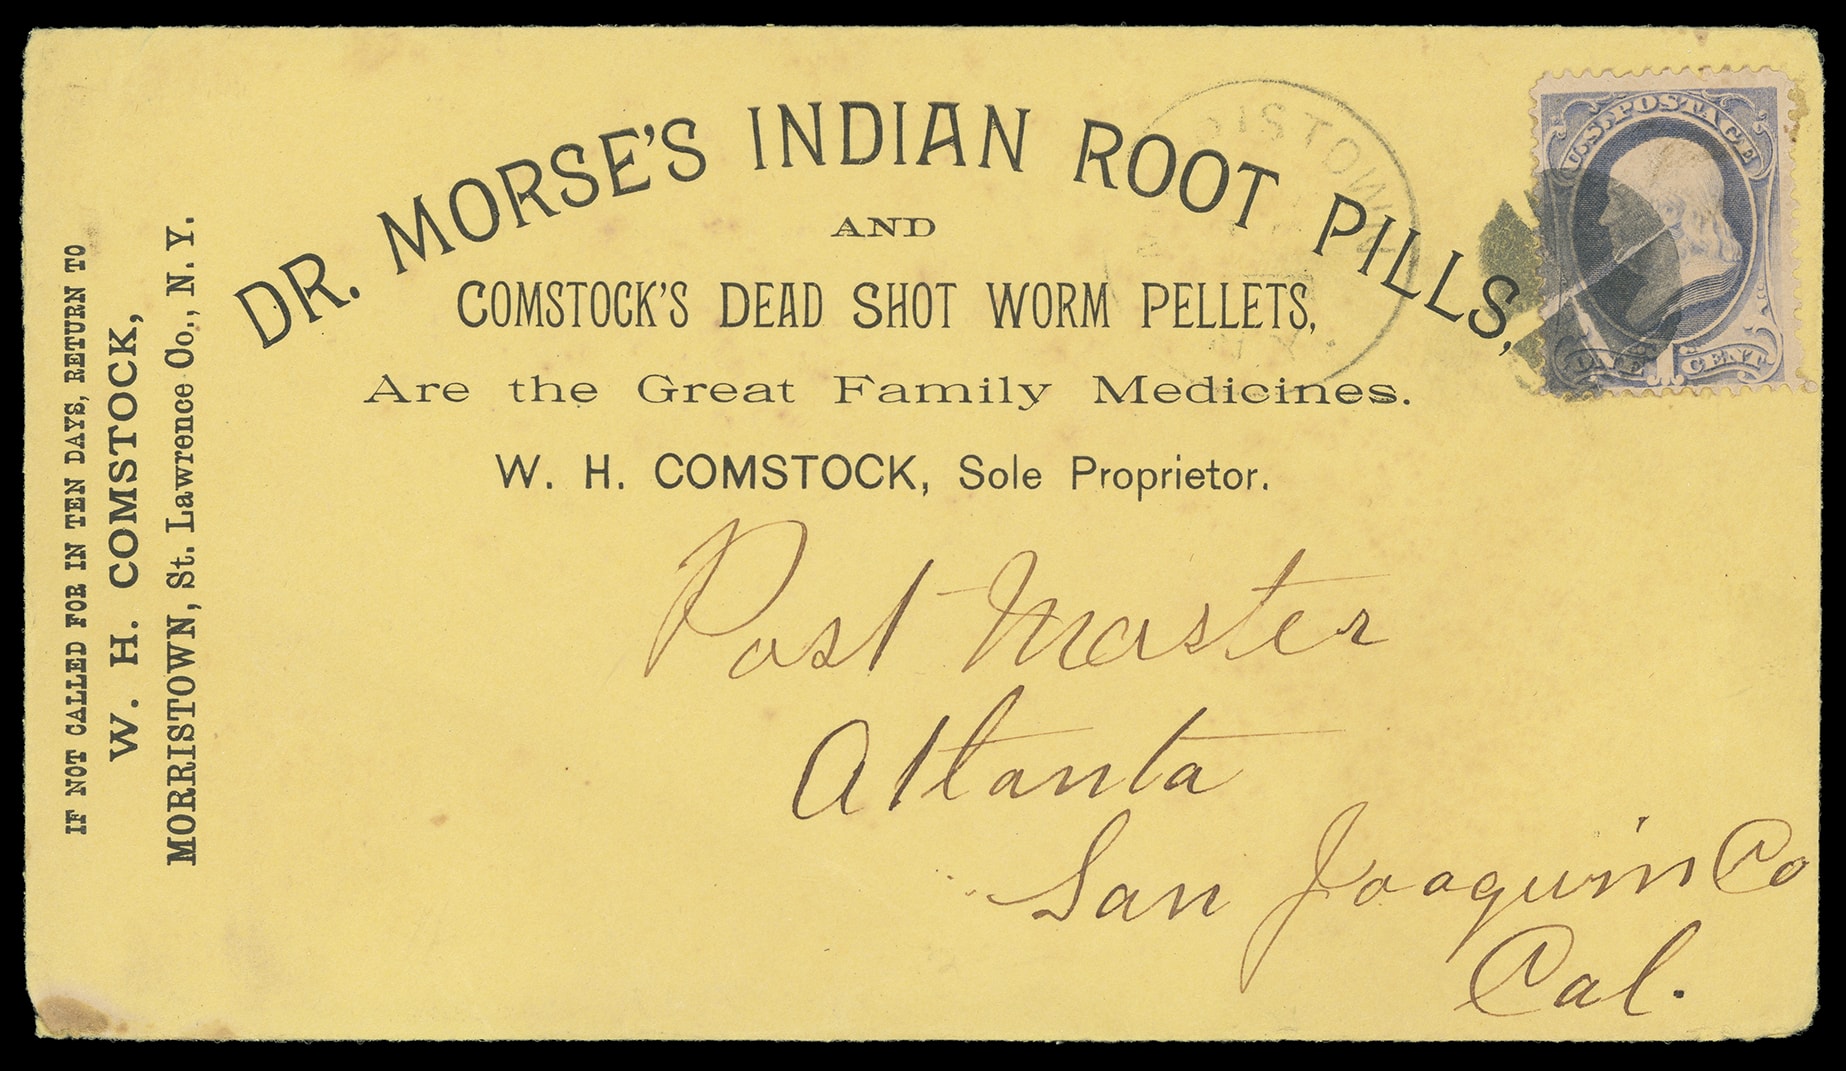 DR. MORSE'S INDIAN ROOT PILLS,
AND
COMSTOCK'S DEAD SHOT WORM PELLETS,
Are the Great Family Medicines.
W. H. COMSTOCK, Sole Proprietor.
IF NOT CALLED FOR IN TEN DAYS, RETURN TO
W. H. COMSTOCK,
MORRISTOWN, St. Lawrence Co., N. Y.
U.S. POSTAGE
ONE 1 CENT
N.Y.
Post Master
Atlanta
San Joaquin Co
Cal.